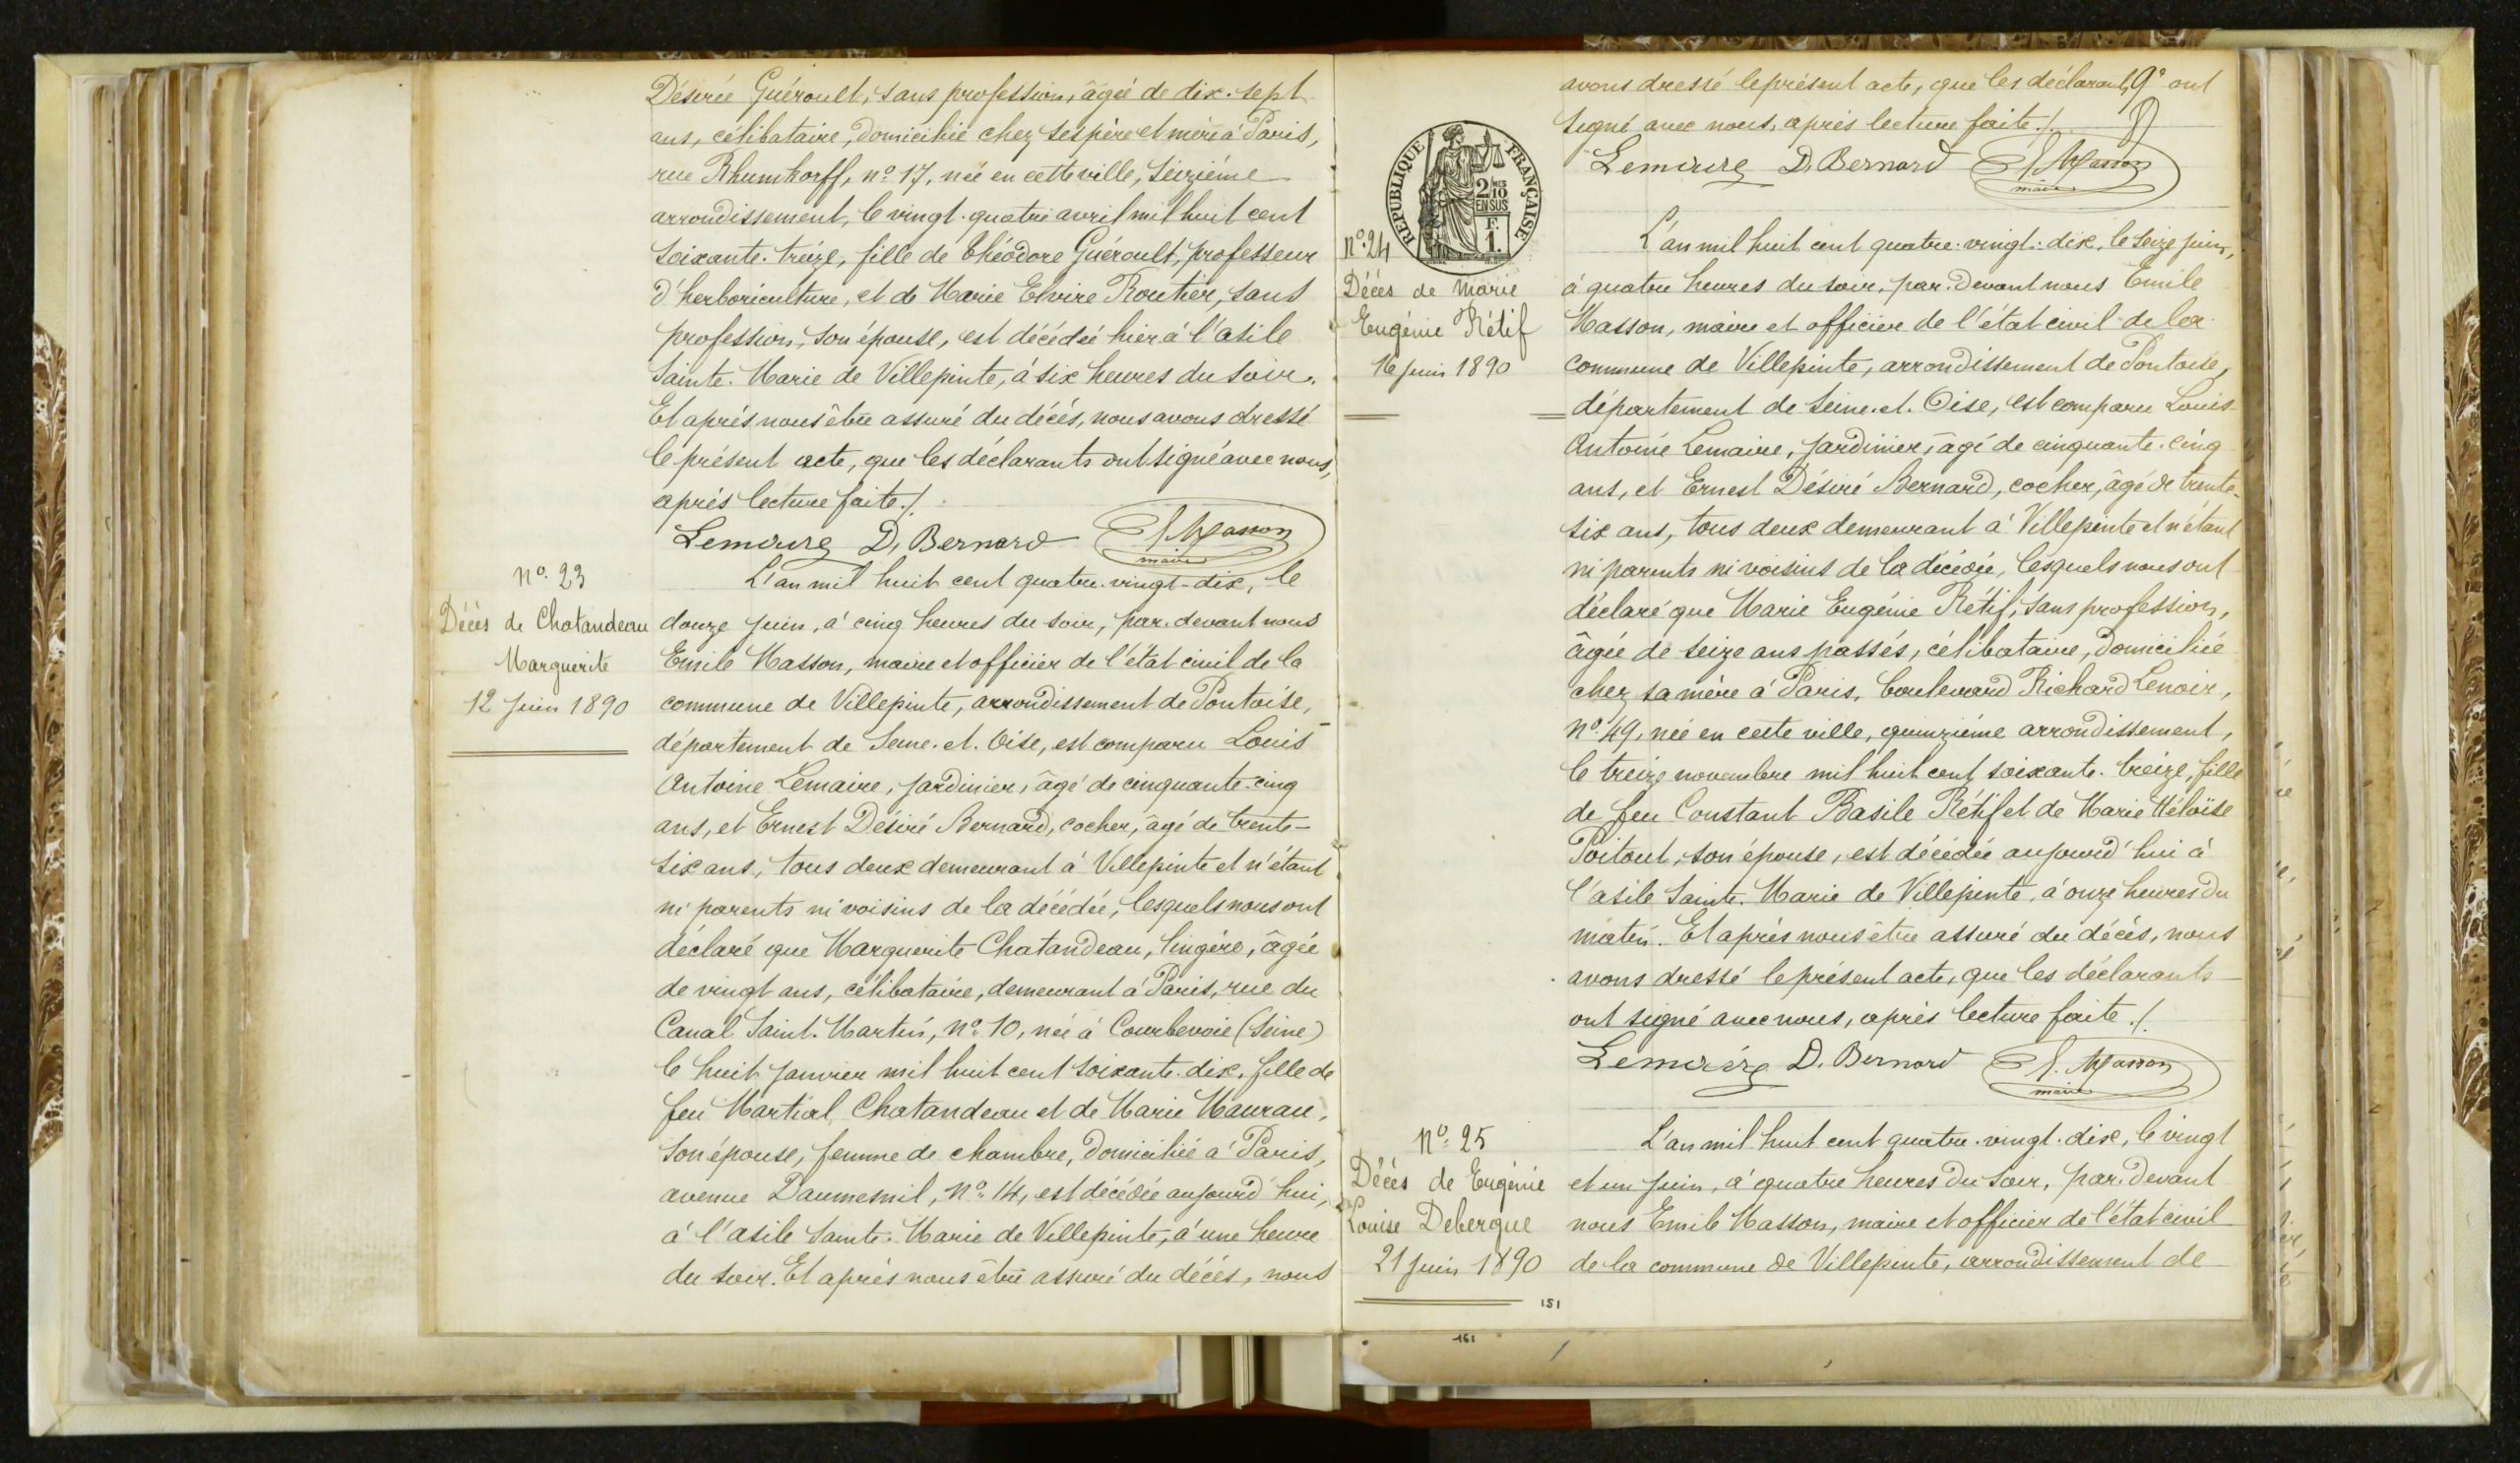 Désirée Guéroult, sans profession, âgée de dix-sept
ans, célibataire, domiciliée chez ses père et mère à Paris,
rue Rhumkorff, n° 17, née en cette ville, seizième
arrondissement, le vingt-quatre avril mil huit cent
soixante-treize, fille de Théodore Guéroult, professeur
d'herboriculture, et de Marie Elvire Routier, sans
profession, son épouse, est décédée hier à l'asile
Sainte-Marie de Villepinte, à six heures du soir.
Et après nous être assuré du décès, nous avons dressé
le présent acte, que les déclarants ont signé avec nous,
après lecture faite./.
Lemaire D. Bernard E. Masson
maire
N° 23
Décès de Chatandeau
Marguerite
12 Juin 1890
L'an mil huit cent quatre-vingt-dix, le
douze juin, à cinq heures du soir, par-devant nous
Emile Masson, maire et officier de l'état civil de la
commune de Villepinte, arrondissement de Pontoise,
département de Seine-et-Oise, est comparu Louis
Antoine Lemaire, jardinier, âgé de cinquante-cinq
ans, et Ernest Désiré Bernard, cocher, âgé de trente-
six ans, tous deux demeurant à Villepinte et n'étant
ni parents ni voisins de la décédée, lesquels nous ont
déclaré que Marguerite Chatandeau, lingère, âgée
de vingt ans, célibataire, demeurant à Paris, rue du
Canal Saint-Martin, n° 10, née à Courbevoie (Seine)
le huit janvier mil huit cent soixante-dix, fille de
feu Martial Chatandeau et de Marie Mauran,
son épouse, femme de chambre, domiciliée à Paris,
avenue Daumesnil, n° 14, est décédée aujourd'hui,
à l'asile Sainte-Marie de Villepinte, à une heure
du soir. Et après nous être assuré du décès, nous
avons dressé le présent acte, que les déclarants ont
signé avec nous, après lecture faite./.
Lemaire D. Bernard E. Masson
maire
REPUBLIQUE FRANÇAISE
2/10 EN SUS
F. 1.
N° 24
Décès de Marie
Eugénie Rétif
16 Juin 1890
L'an mil huit cent quatre-vingt-dix, le seize juin,
à quatre heures du soir, par-devant nous Emile
Masson, maire et officier de l'état civil de la
commune de Villepinte, arrondissement de Pontoise,
département de Seine-et-Oise, est comparu Louis
Antoine Lemaire, jardinier, âgé de cinquante-cinq
ans, et Ernest Désiré Bernard, cocher, âgé de trente-
six ans, tous deux demeurant à Villepinte et n'étant
ni parents ni voisins de la décédée, lesquels nous ont
déclaré que Marie Eugénie Rétif, sans profession,
âgée de seize ans passés, célibataire, domiciliée
chez sa mère à Paris, boulevard Richard Lenoir,
n° 49, née en cette ville, quinzième arrondissement,
le treize novembre mil huit cent soixante-treize, fille
de feu Constant Basile Rétif et de Marie Héloïse
Poitout, son épouse, est décédée aujourd'hui à
l'asile Sainte-Marie de Villepinte, à onze heures du
matin. Et après nous être assuré du décès, nous
avons dressé le présent acte, que les déclarants
ont signé avec nous, après lecture faite./.
Lemaire D. Bernard E. Masson
maire
N° 25
Décès de Eugénie
Louise Debergue
21 juin 1890
L'an mil huit cent quatre-vingt-dix, le vingt
et un juin, à quatre heures du soir, par-devant
nous Emile Masson, maire et officier de l'état civil
de la commune de Villepinte, arrondissement de
151
161